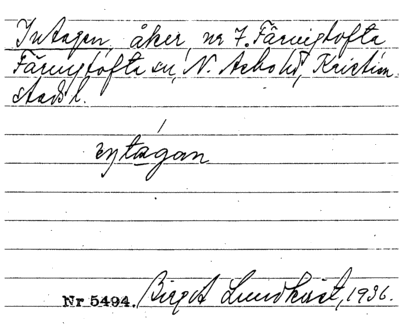 Intagen, åker, nr 7. Färingtofta
Färingtofta sn, N. Åsbo hd, Kristian-
stads l.
Nr 5494. Birgit Lundkvist, 1936.